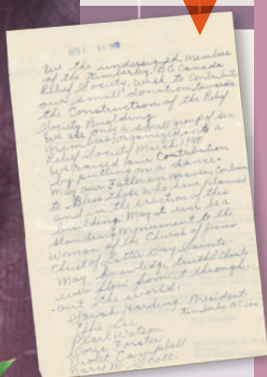 We the undersigned members
of the Kimberley, BC Canada
Relief Society, wish to contribute
our small donation towards
the Construction of the Relief
Society Building.
We are only a small group of
members
Relief Society March 1948
We raised our Contribution
by putting on a dance.
May our Father in Heaven Continue
to Bless those who have planned
and in the erection of this
building. May it ever be a
standing Monument to the
Woman of the Church of Jesus
Christ of Latter Day Saints.
May knowledge, truth & Charity
ever flow from it through-
out the world.
Sarah Harding President
Kimberley BC Can
Effie Lee
Pearl Watson
Doris Forster
Violet Campbell
Mary M. Scott